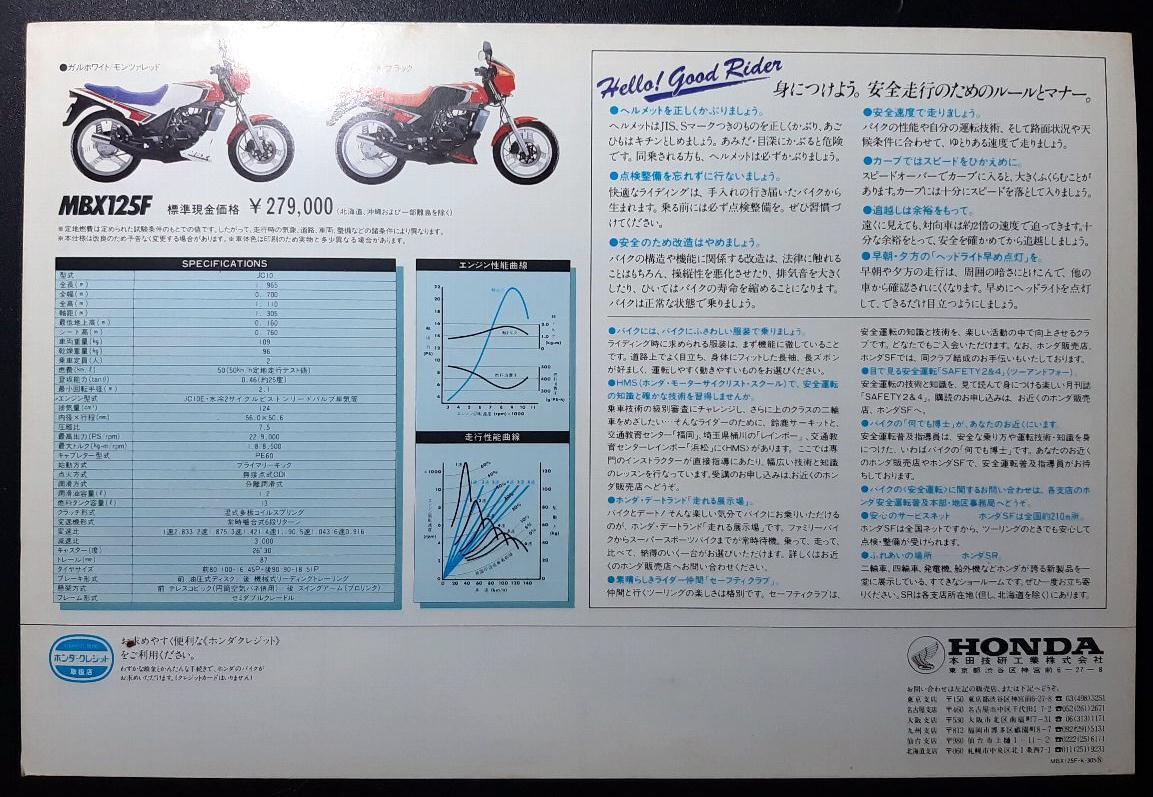 ●ガルホワイト/モンツァレッド
ブラック
MBX125F 標準現金価格 ￥279,000 (北海道、沖縄および一部離島を除く)
※定地燃費は定められた試験条件のもとでの値です。したがって、走行時の気象、道路、車両、整備などの諸条件により異なります。
※本仕様は改良のため予告なく変更する場合があります。※車体色は印刷のため実物と多少異なる場合があります。
SPECIFICATIONS
型式 JC10
全長(m) 1.965
全幅(m) 0.700
全高(m) 1.110
軸距(m) 1.305
最低地上高(m) 0.160
シート高(m) 0.760
車両重量(kg) 109
乾燥重量(kg) 96
乗車定員(人) 2
燃費(km/ℓ) 50(50km/h定地走行テスト値)
登坂能力(tanθ) 0.46(約25度)
最小回転半径(m) 2.1
エンジン型式 JC10E・水冷2サイクルピストンリードバルブ単気筒
排気量(cm³) 124
内径×行程(mm) 56.0×50.6
圧縮比 7.5
最高出力(PS/rpm) 22/9,000
最大トルク(kg-m/rpm) 1.8/8,500
キャブレター型式 PE60
始動方式 プライマリーキック
点火方式 無接点式CDI
潤滑方式 分離潤滑式
潤滑油容量(ℓ) 1.2
燃料タンク容量(ℓ) 13
クラッチ形式 湿式多板コイルスプリング
変速機形式 常時噛合式6段リターン
変速比 1速2.833 2速1.875 3速1.421 4速1.190 5速1.043 6速0.916
減速比 3.000
キャスター(度) 26°30′
トレール(mm) 87
タイヤサイズ 前80/100-16 45P・後90/90-18 51P
ブレーキ形式 前 油圧式ディスク 後 機械式リーディングトレーリング
懸架方式 前 テレスコピック(円筒空気バネ併用) 後 スイングアーム(プロリンク)
フレーム形式 セミダブルクレードル
エンジン性能曲線
エンジン回転速度(rpm)×1000
走行性能曲線
車速(km/h)
Hello! Good Rider 身につけよう。安全走行のためのルールとマナー。
●ヘルメットを正しくかぶりましょう。
ヘルメットはJIS、Sマークつきのものを正しくかぶり、あご
ひもはキチンとしめましょう。あみだ・目深にかぶると危険
です。同乗される方も、ヘルメットは必ずかぶりましょう。
●点検整備を忘れずに行ないましょう。
快適なライディングは、手入れの行き届いたバイクから
生まれます。乗る前には必ず点検整備を。ぜひ習慣づ
けてください。
●安全のため改造はやめましょう。
バイクの構造や機能に関係する改造は、法律に触れる
ことはもちろん、操縦性を悪化させたり、排気音を大きく
したり、ひいてはバイクの寿命を縮めることになります。
バイクは正常な状態で乗りましょう。
●安全速度で走りましょう。
バイクの性能や自分の運転技術、そして路面状況や天
候条件に合わせて、ゆとりある速度で走りましょう。
●カーブではスピードをひかえめに。
スピードオーバーでカーブに入ると、大きくふくらむことが
あります。カーブには十分にスピードを落として入りましょう。
●追越しは余裕をもって。
遠くに見えても、対向車は約2倍の速度で迫ってきます。十
分な余裕をとって、安全を確かめてから追越しましょう。
●早朝・夕方の「ヘッドライト早め点灯」を。
早朝や夕方の走行は、周囲の暗さにとけこんで、他の
車から確認されにくくなります。早めにヘッドライトを点灯
して、できるだけ目立つようにしましょう。
●バイクには、バイクにふさわしい服装で乗りましょう。
ライディング時に求められる服装は、まず機能に徹していること
です。道路上でよく目立ち、身体にフィットした長袖、長ズボン
が好ましく、運転しやすく動きやすいものをお選びください。
●HMS(ホンダ・モーターサイクリスト・スクール)で、安全運転
の知識と確かな技術を習得しませんか。
乗車技術の級別審査にチャレンジし、さらに上のクラスの二輪
車をめざしたい…そんなライダーのために、鈴鹿サーキットと、
交通教育センター「福岡」、埼玉県桶川の「レインボー」、交通教
育センターレインボー「浜松」に〈HMS〉があります。ここでは専
門のインストラクターが直接指導にあたり、幅広い技術と知識
のレッスンを行なっています。受講のお申し込みはお近くのホン
ダ販売店へどうぞ。
●ホンダ・デートランド「走れる展示場」。
バイクとデート!そんな楽しい気分でバイクにお乗りいただける
のが、ホンダ・デートランド「走れる展示場」です。ファミリーバイ
クからスーパースポーツバイクまでが常時待機。乗って、走って、
比べて、納得のいく一台がお選びいただけます。詳しくはお近く
のホンダ販売店へお問い合わせください。
●素晴らしきライダー仲間「セーフティクラブ」。
仲間と行くツーリングの楽しさは格別です。セーフティクラブは、
安全運転の知識と技術を、楽しい活動の中で向上させるクラ
ブです。どなたでもご入会いただけます。なお、ホンダ販売店、
ホンダSFでは、同クラブ結成のお手伝いもいたしております。
●目で見る安全運転「SAFETY2&4」(ツーアンドフォー)。
安全運転の技術と知識を、見て読んで身につける楽しい月刊誌
「SAFETY2&4」。購読のお申し込みは、お近くのホンダ販売
店、ホンダSFへ。
●バイクの「何でも博士」が、あなたのお近くにいます。
安全運転普及指導員は、安全な乗り方や運転技術・知識を身
につけた、いわばバイクの「何でも博士」です。あなたのお近く
のホンダ販売店やホンダSFで、安全運転普及指導員がお待
ちしております。
●バイクの〈安全運転〉に関するお問い合わせは、各支店のホ
ンダ安全運転普及本部・地区事務局へどうぞ。
●安心のサービスネット ホンダSFは全国約210ヵ所。
ホンダSFは全国ネットですから、ツーリングのときも安心して
点検・整備が受けられます。
●ふれあいの場所 ホンダSR。
二輪車、四輪車、発電機、船外機などホンダが誇る新製品を一
堂に展示している、すてきなショールームです。ぜひ一度お立ち寄
りください。SRは各支店所在地(但し、北海道を除く)にあります。
ホンダ・クレジット
取扱店
お求めやすく便利な《ホンダクレジット》
をご利用ください。
わずかな頭金とかんたんな手続きで、ホンダのバイクが
お求めいただけます。(クレジットカードはいりません)
HONDA
本田技研工業株式会社
東京都渋谷区神宮前6-27-8
お問い合わせは左記の販売店、または下記へどうぞ。
東京支店 〒150 東京都渋谷区神宮前6-27-8 ☎03(498)3251
名古屋支店 〒460 名古屋市中区千代田1-7-2 ☎052(261)2671
大阪支店 〒530 大阪市北区南扇町7-31 ☎06(313)1171
九州支店 〒812 福岡市博多区雀居8-7 ☎092(291)5131
仙台支店 〒980 仙台市上杉1-11-2 ☎0222(25)6171
北海道支店 〒060 札幌市中央区北1条西7-1 ☎011(251)9231
MBX125F-K-305Ⓝ